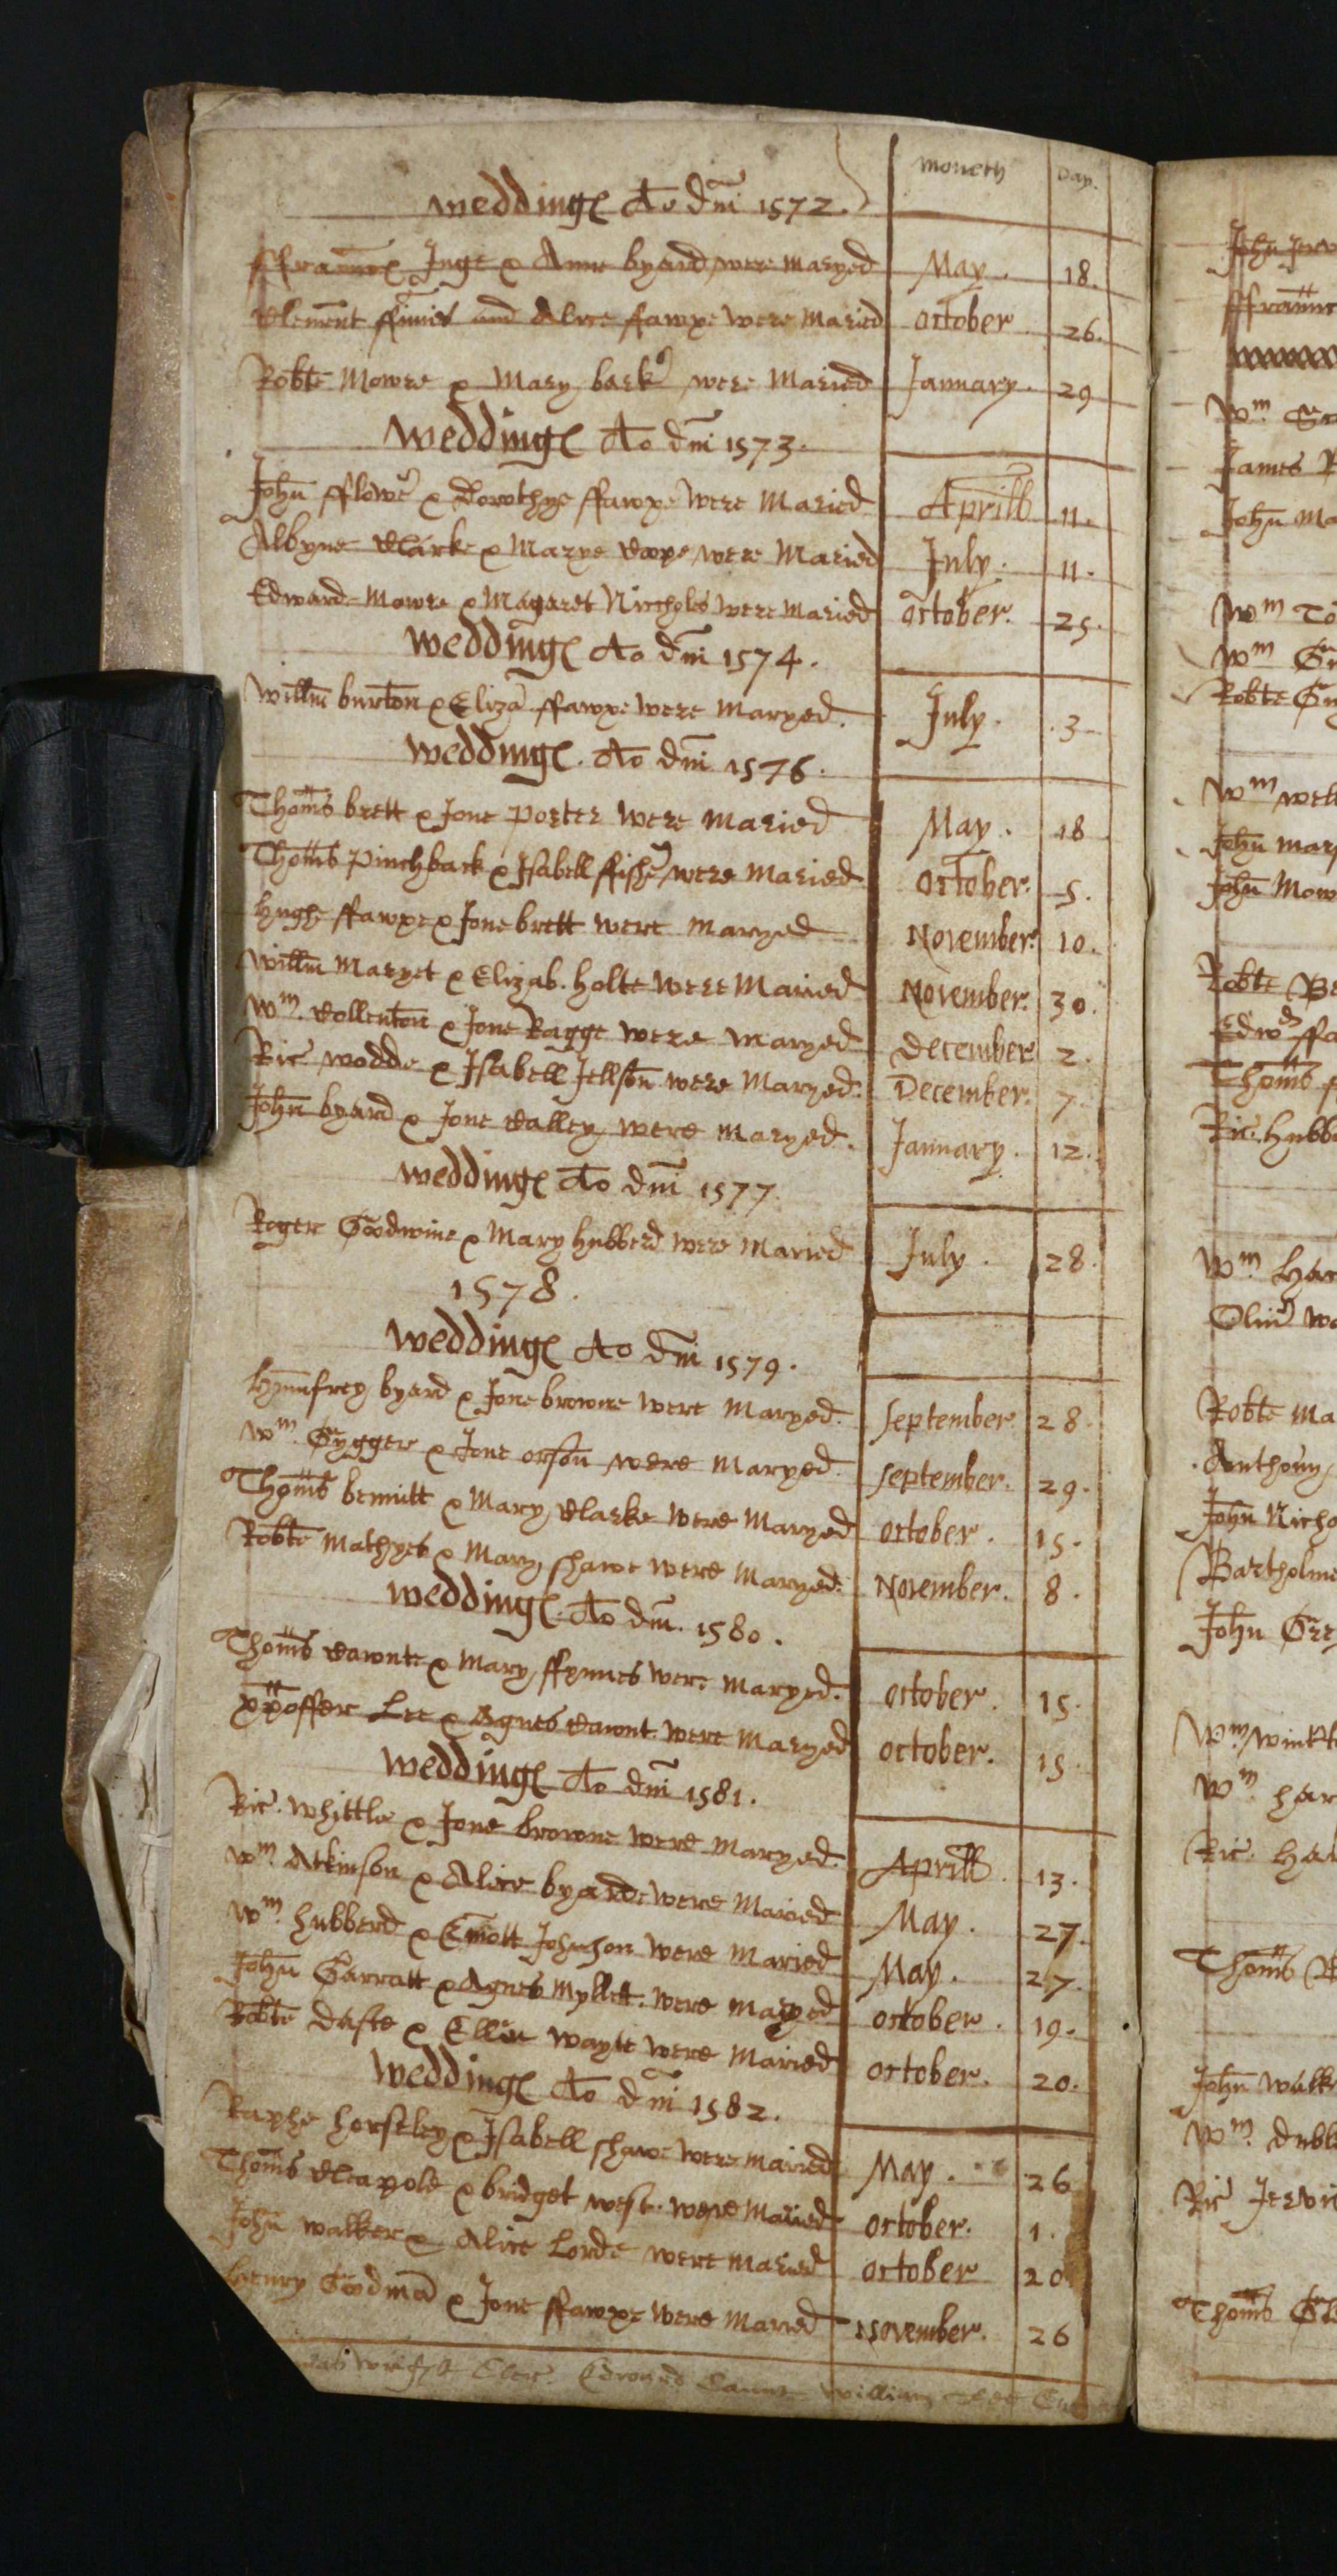 moneth Day.
weddinges Ao dm̄i 1572.
ffraunces Inge & Anne byard were maryed May. 18.
Clement ffinnis and Alice ffawxe were Maried October 26.
Robte Mowre & Mary bark' were Maried January. 29
weddinges Ao dm̄i 1573.
John fflow' & Dorothye ffawxe were Maried Aprill 11.
Albyne Clarke & Marye Coxe were Maried July. 11.
Edward Mowre & Magaret Nicholes were maried October. 25.
weddinges Ao dm̄i 1574.
Willm burton & Eliza. ffawxe were Maryed. July. 3
weddinges. Ao dm̄i 1576.
Thom̄s brett & Jone Porter were maried May. 18
Thom̄s Pinchback & Isabell ffish' were Maried October. 5.
Hughe ffawxe & Jone brett were Maryed November. 10.
Willm Maryet & Elizab. Holte were Maried November. 30.
Wm. Collenton & Jone Ragge were Maryed December 2.
Ric wodde & Isabell Jellson were Maryed. December. 7
John byard & Jone Calley were Maryed. January. 12.
weddinges Ao dm̄i 1577
Roger Goodwine & Mary hubberd were Maried July. 28.
1578.
weddinges Ao dm̄i 1579.
Humfrey byard & Jone browne were Maryed. September. 28.
Wm. Gygger & Jone orson were Maryed. September. 29.
Thom̄s bennitt & Mary Clarke were Maryed October. 15.
Robte Mathyes & Mary shawe were Maryed. November. 8.
weddinges. Ao dm̄i. 1580.
Thom̄s Cawnte & Mary ffynnes were Maryed. October. 15.
xp̄offer Lee & Agnes Cawnt were Maryed October. 15
weddinges Ao dm̄i 1581.
Ric. Whittle & Jone browne were Maryed. Aprill. 13.
Wm. Atkinson & Alice byarde were Maried May. 27.
Wm. hubberd & Emott Johnson were Maried May. 27.
John Garratt & Agnes Myllett were Maryed October. 19.
Robte Dafte & Ellin wayte were Maried October. 20.
weddinges Ao dm̄i 1582.
Raphe horseley & Isabell shawe were Maried May. 26
Thom̄s Claxole & bridget west. were Maried October. 1.
John walker & Alice Lorde were Maried October 20
Henry Godmā & Jone ffawxe were Maried November. 26
Edward Caunt William Lee
John
ffraunc
Wm
James
John Ma
Wm To
Wm
Robte
Wm well
John Mary
John Mow
Robte Be
Edwd ffa
Thom̄s
Ric. Hubb
Wm Har
Robte Ma
Anthony
John Nicho
Bartholme
John Gre
Wm
Wm har
Ric. Ha
Thom̄s
John walk
Wm. Dubl
Ric Jervi
Thom̄s